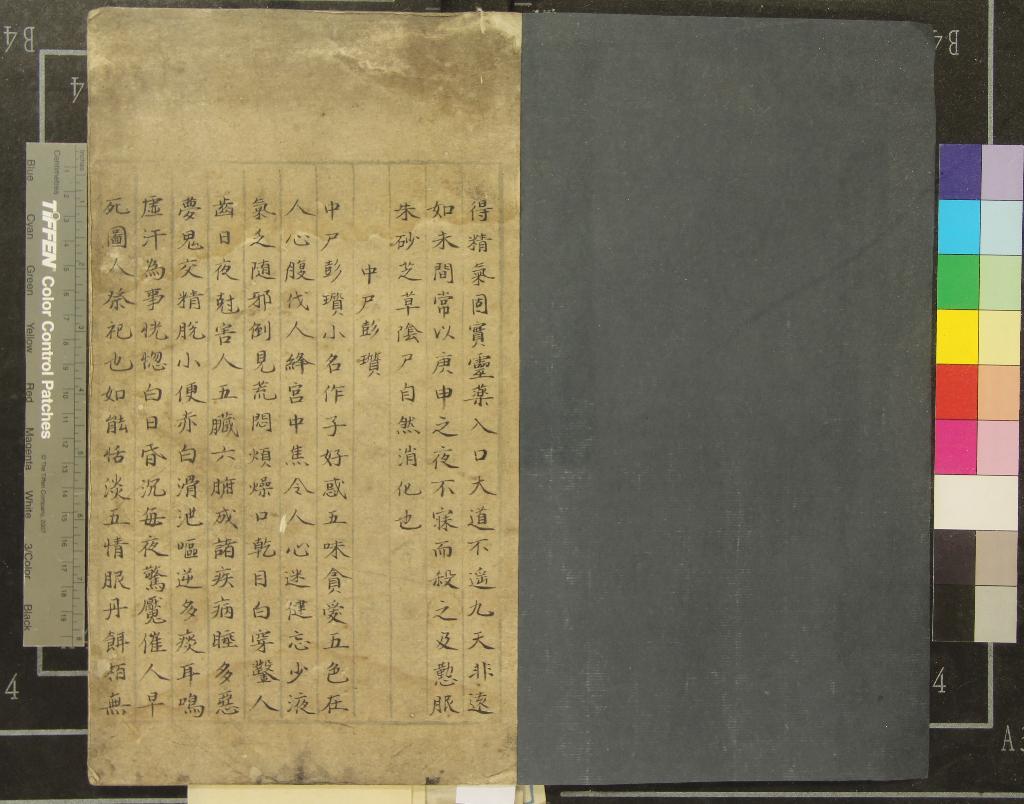 得精氣固實靈藥入口大道不遥九天非遠
如未間常以庚申之夜不寐而殺之及懃服
朱砂芝草隂尸自然消化也
中尸彭瓆
中尸彭瓆小名作子好惑五味貪愛五色在
人心腹伐人絳宮中焦令人心迷健忘少液
氣乏随邪倒見荒悶煩燥口乾目白穿鑿人
齒日夜尅害人五臓六腑成諸疾病睡多惡
夢鬼交精脫小便赤白滑泄嘔逆多痰耳鳴
虛汗為事恍惚白日昏沉每夜驚魘催人早
死圖人祭祀也如能恬淡五情服丹餌栢無
B4
4
B4
4
4
A3
Inches
Centimetres
TIFFEN Color Control Patches
© The Tiffen Company, 2007
Blue Cyan Green Yellow Red Magenta White 3/Color Black